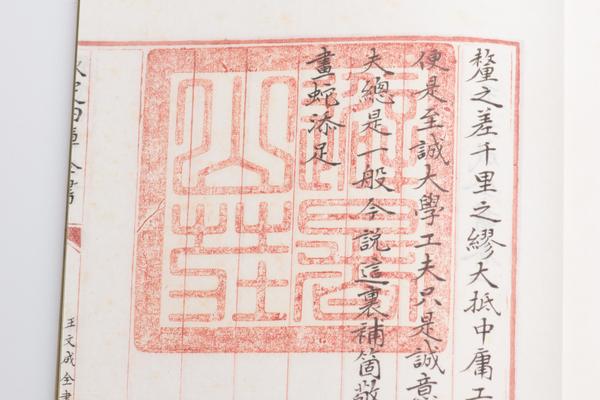 釐之差千里之繆大抵中庸工
便是至誠大學工夫只是誠意
夫總是一般今說這裏補箇敬
畫蛇添足
避暑山莊
欽定四庫全書
王文成全書